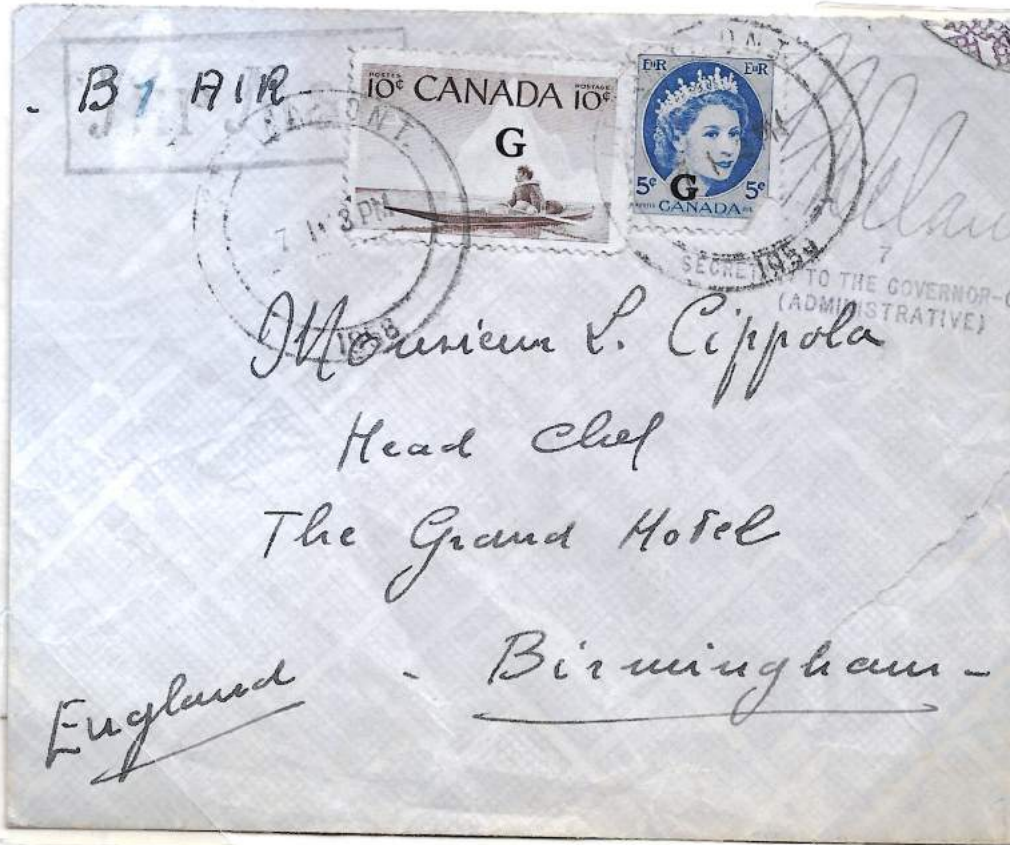 B7 AIR
POSTES 10¢ CANADA POSTAGE 10¢
G
EIIR EIIR
5¢ G 5¢
CANADA
ONT.
3 PM
1958
ONT
195
7
SECRETARY TO THE GOVERNOR-G
(ADMINISTRATIVE)
Monsieur L. Cippola
Head Chef
The Grand Hotel
Birmingham -
England